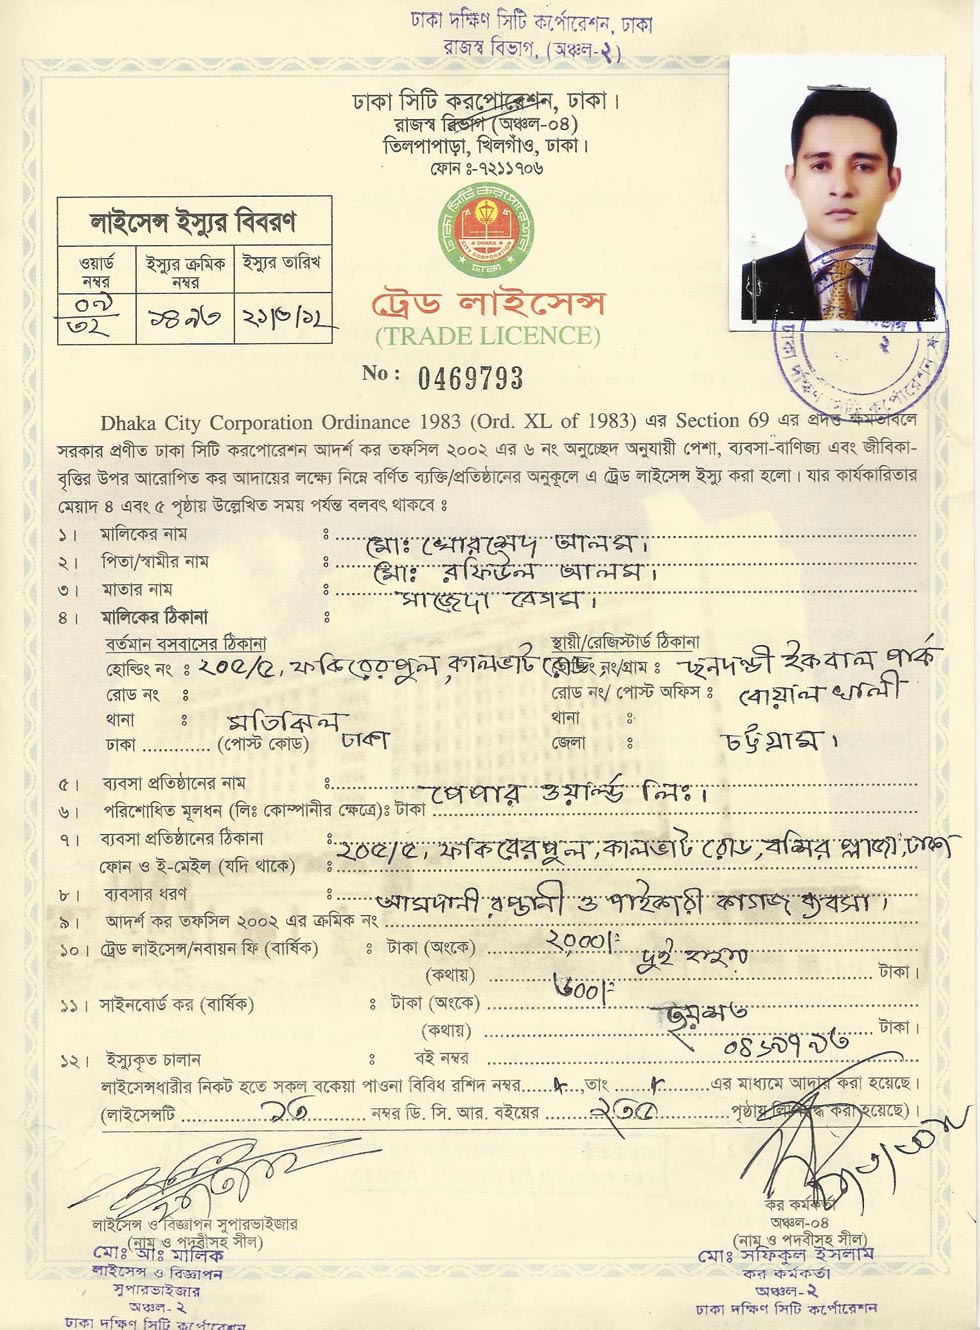 ঢাকা দক্ষিণ সিটি কর্পোরেশন, ঢাকা
রাজস্ব বিভাগ, (অঞ্চল-২)
ঢাকা সিটি করপোরেশন, ঢাকা।
রাজস্ব বিভাগ (অঞ্চল-০৪)
তিলপাপাড়া, খিলগাঁও, ঢাকা।
ফোন ঃ-৭২১১৭০৬
লাইসেন্স ইস্যুর বিবরণ
ওয়ার্ড নম্বর ইস্যুর ক্রমিক নম্বর ইস্যুর তারিখ
০৯/৩২ ১৪৯৩ ২১/৩/১২
ঢাকা সিটি করপোরেশন
DHAKA CITY CORPORATION
ঢাকা
ট্রেড লাইসেন্স
(TRADE LICENCE)
No : 0469793
ঢাকা দক্ষিণ সিটি কর্পোরেশন
২
Dhaka City Corporation Ordinance 1983 (Ord. XL of 1983) এর Section 69 এর প্রদত্ত ক্ষমতাবলে
সরকার প্রণীত ঢাকা সিটি করপোরেশন আদর্শ কর তফসিল ২০০২ এর ৬ নং অনুচ্ছেদ অনুযায়ী পেশা, ব্যবসা-বাণিজ্য এবং জীবিকা-
বৃত্তির উপর আরোপিত কর আদায়ের লক্ষ্যে নিম্নে বর্ণিত ব্যক্তি/প্রতিষ্ঠানের অনুকূলে এ ট্রেড লাইসেন্স ইস্যু করা হলো। যার কার্যকারিতার
মেয়াদ ৪ এবং ৫ পৃষ্ঠায় উল্লেখিত সময় পর্যন্ত বলবৎ থাকবে ঃ
১। মালিকের নাম ঃ মোঃ খোরশেদ আলম।
২। পিতা/স্বামীর নাম ঃ মোঃ রফিউল আলম।
৩। মাতার নাম ঃ সাজেদা বেগম।
৪। মালিকের ঠিকানা ঃ
বর্তমান বসবাসের ঠিকানা স্থায়ী/রেজিস্টার্ড ঠিকানা
হোল্ডিং নং ঃ ২০৫/৫, ফকিরেরপুল, কালভার্ট রোড, হোল্ডিং নং/গ্রাম ঃ ছনদন্ডী ইকবাল পার্ক
রোড নং ঃ রোড নং/ পোস্ট অফিস ঃ বোয়াল খালী
থানা ঃ মতিঝিল থানা ঃ
ঢাকা ............ (পোস্ট কোড) ঢাকা জেলা ঃ চট্টগ্রাম।
৫। ব্যবসা প্রতিষ্ঠানের নাম ঃ পেপার ওয়ার্ল্ড লিঃ।
৬। পরিশোধিত মূলধন (লিঃ কোম্পানীর ক্ষেত্রে)ঃ টাকা
৭। ব্যবসা প্রতিষ্ঠানের ঠিকানা ঃ ২০৫/৫, ফকিরেরপুল, কালভার্ট রোড, বসির প্লাজা, ঢাকা
ফোন ও ই-মেইল (যদি থাকে) ঃ
৮। ব্যবসার ধরণ ঃ আমদানী রপ্তানী ও পাইকারী কাগজ ব্যবসা।
৯। আদর্শ কর তফসিল ২০০২ এর ক্রমিক নং
১০। ট্রেড লাইসেন্স/নবায়ন ফি (বার্ষিক) ঃ টাকা (অংকে) ২,000/-
(কথায়) দুই হাজার টাকা।
১১। সাইনবোর্ড কর (বার্ষিক) ঃ টাকা (অংকে) ৬00/-
(কথায়) ছয়শত টাকা।
১২। ইস্যুকৃত চালান ঃ বই নম্বর
লাইসেন্সধারীর নিকট হতে সকল বকেয়া পাওনা বিবিধ রশিদ নম্বর ......, তাং ...... এর মাধ্যমে আদায় করা হয়েছে।
(লাইসেন্সটি ১৩ নম্বর ডি. সি. আর. বইয়ের ২৩৫ পৃষ্ঠায় লিপিবদ্ধ করা হয়েছে)।
লাইসেন্স ও বিজ্ঞাপন সুপারভাইজার
(নাম ও পদবীসহ সীল)
মোঃ আঃ মালিক
লাইসেন্স ও বিজ্ঞাপন
সুপারভাইজার
অঞ্চল-২
ঢাকা দক্ষিণ সিটি কর্পোরেশন
কর কর্মকর্তা
অঞ্চল-০৪
(নাম ও পদবীসহ সীল)
মোঃ সফিকুল ইসলাম
কর কর্মকর্তা
অঞ্চল-২
ঢাকা দক্ষিণ সিটি কর্পোরেশন